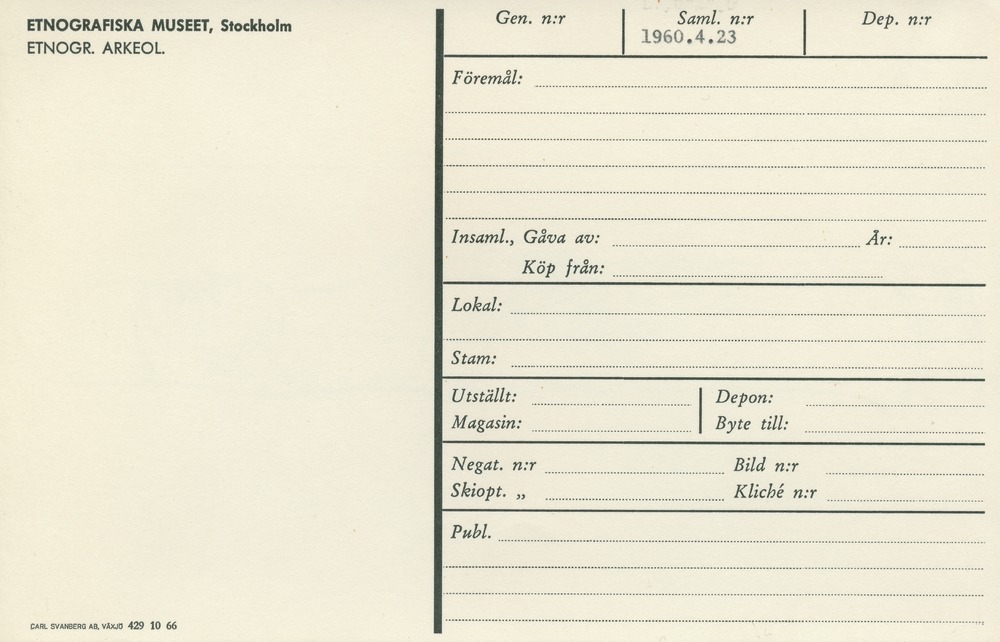 ETNOGRAFISKA MUSEET, Stockholm
ETNOGR. ARKEOL.
Gen. n:r
Saml. n:r
1960.4.23
Dep. n:r
Föremål:
Insaml., Gåva av:
År:
Köp från:
Lokal:
Stam:
Utställt:
Depon:
Magasin:
Byte till:
Negat. n:r
Bild n:r
Skiopt. „
Kliché n:r
Publ.
CARL SVANBERG AB, VÄXJÖ 429 10 66